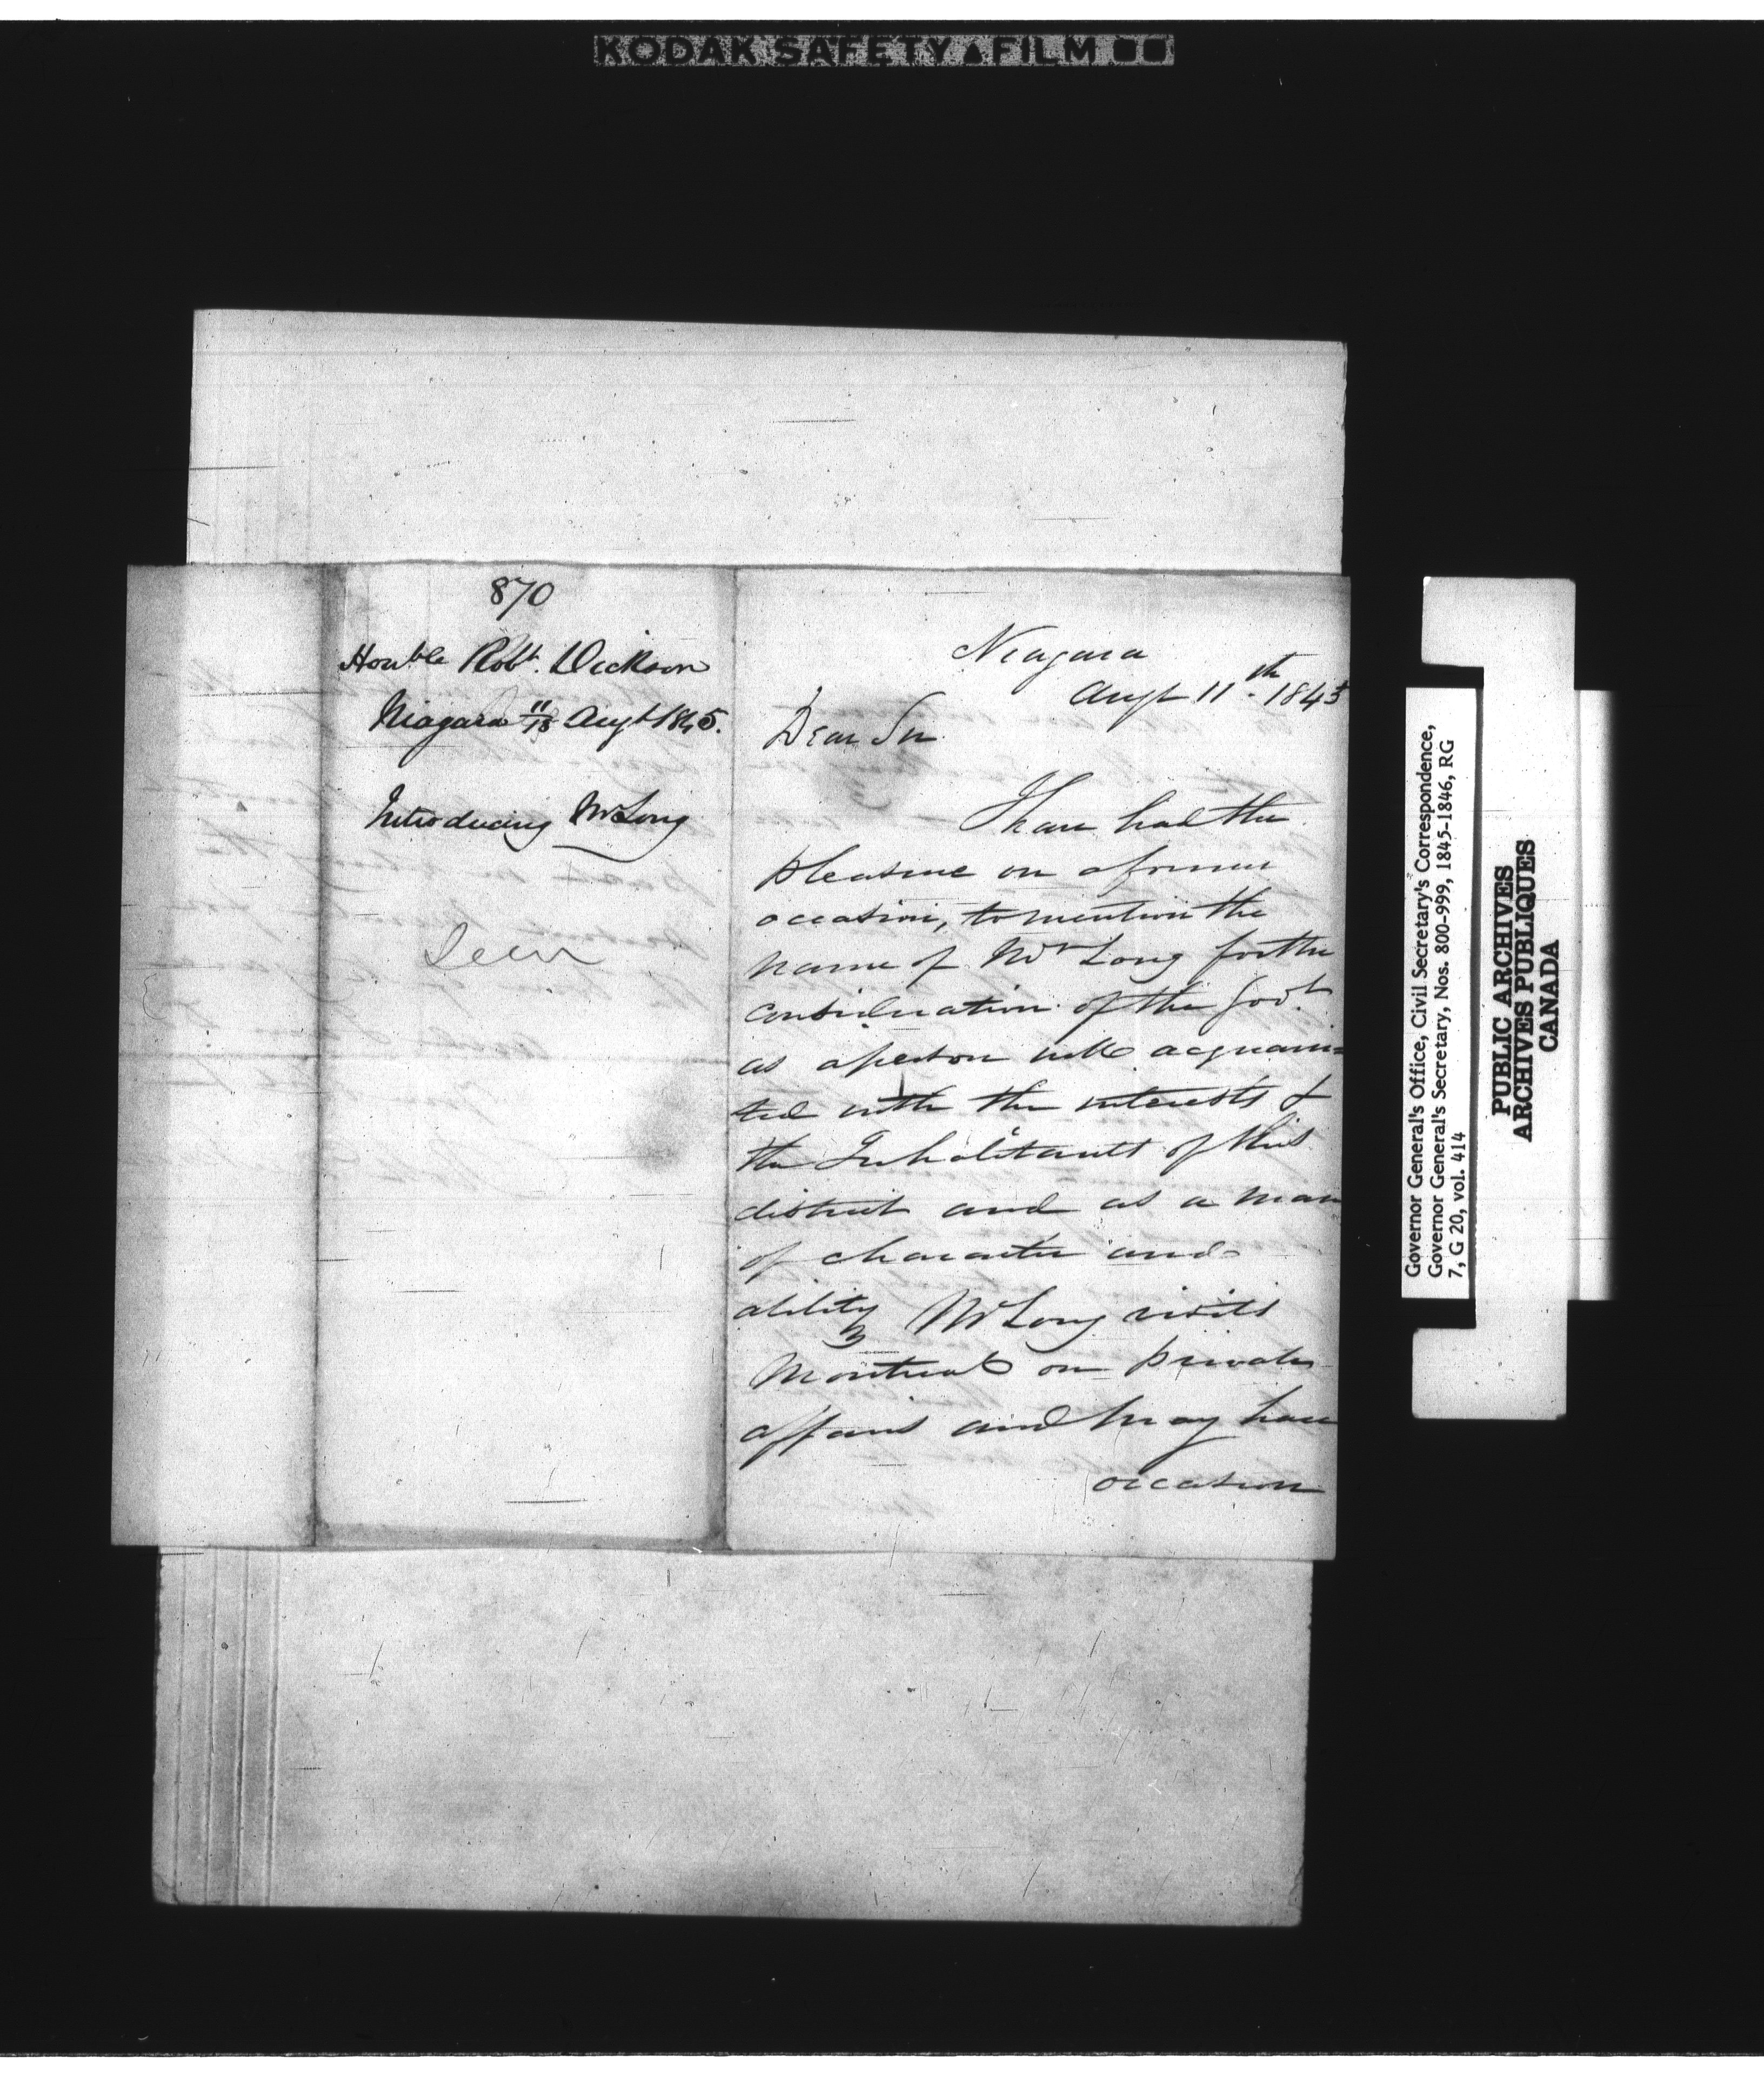 KODAK SAFETY FILM
870
Honble Robt. Dickson
Niagara 11/18 Augt 1845.
Introducing Mr Long
Seen
Niagara
Augt 11th 1845
Dear Sir
I have had the
pleasure on a former
occasion, to mention the
name of Mr Long for the
consideration of the Govt.
as a person well acquain=
ted with the interests &
the Inhabitants of this
district and as a man
of character and
ability Mr Long visits
Montreal on private
affairs and may have
occasion
Governor General's Office, Civil Secretary's Correspondence,
Governor General's Secretary, Nos. 800-999, 1845-1846, RG
7, G 20, vol. 414
PUBLIC ARCHIVES
ARCHIVES PUBLIQUES
CANADA